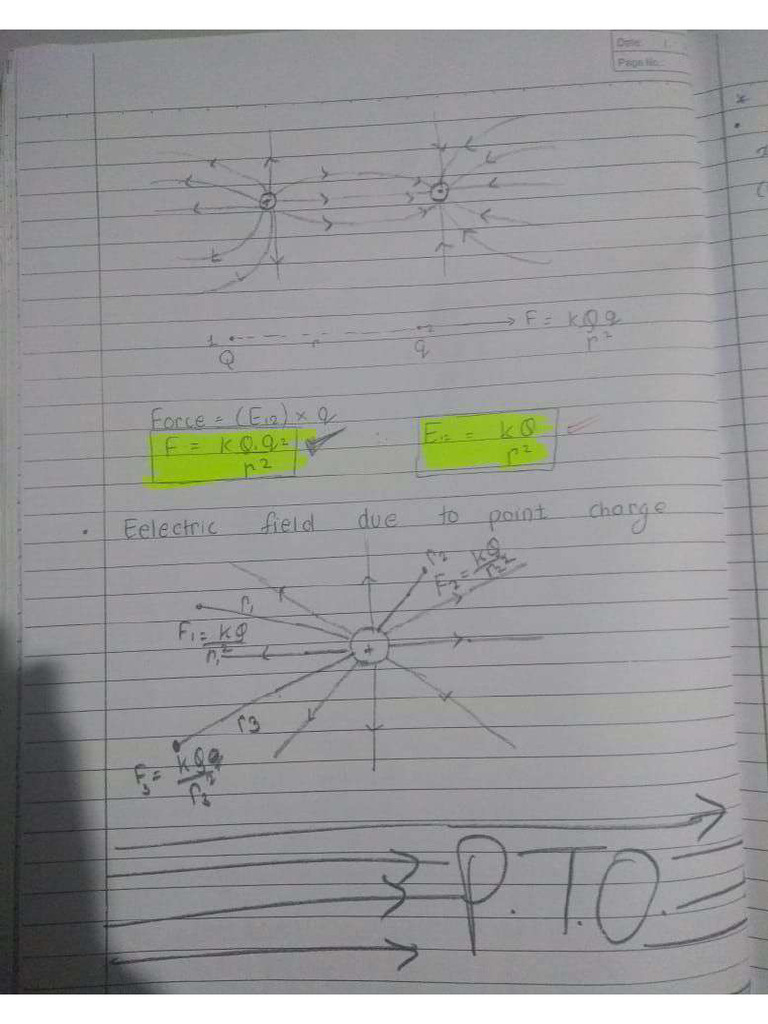 Date:
Page No.
+
-
F = kQq
r²
Q
r
q
Force = (E₁₂) × q
F = kQ.q²
r²
∴
E₁₂ = kQ
r²
• Eelectric field due to point charge
r₂
F₂ = kQ
r₂²
r₁
F₁ = kQ
r₁²
+
r3
F₃ = kQq
r₃²
P.T.O.